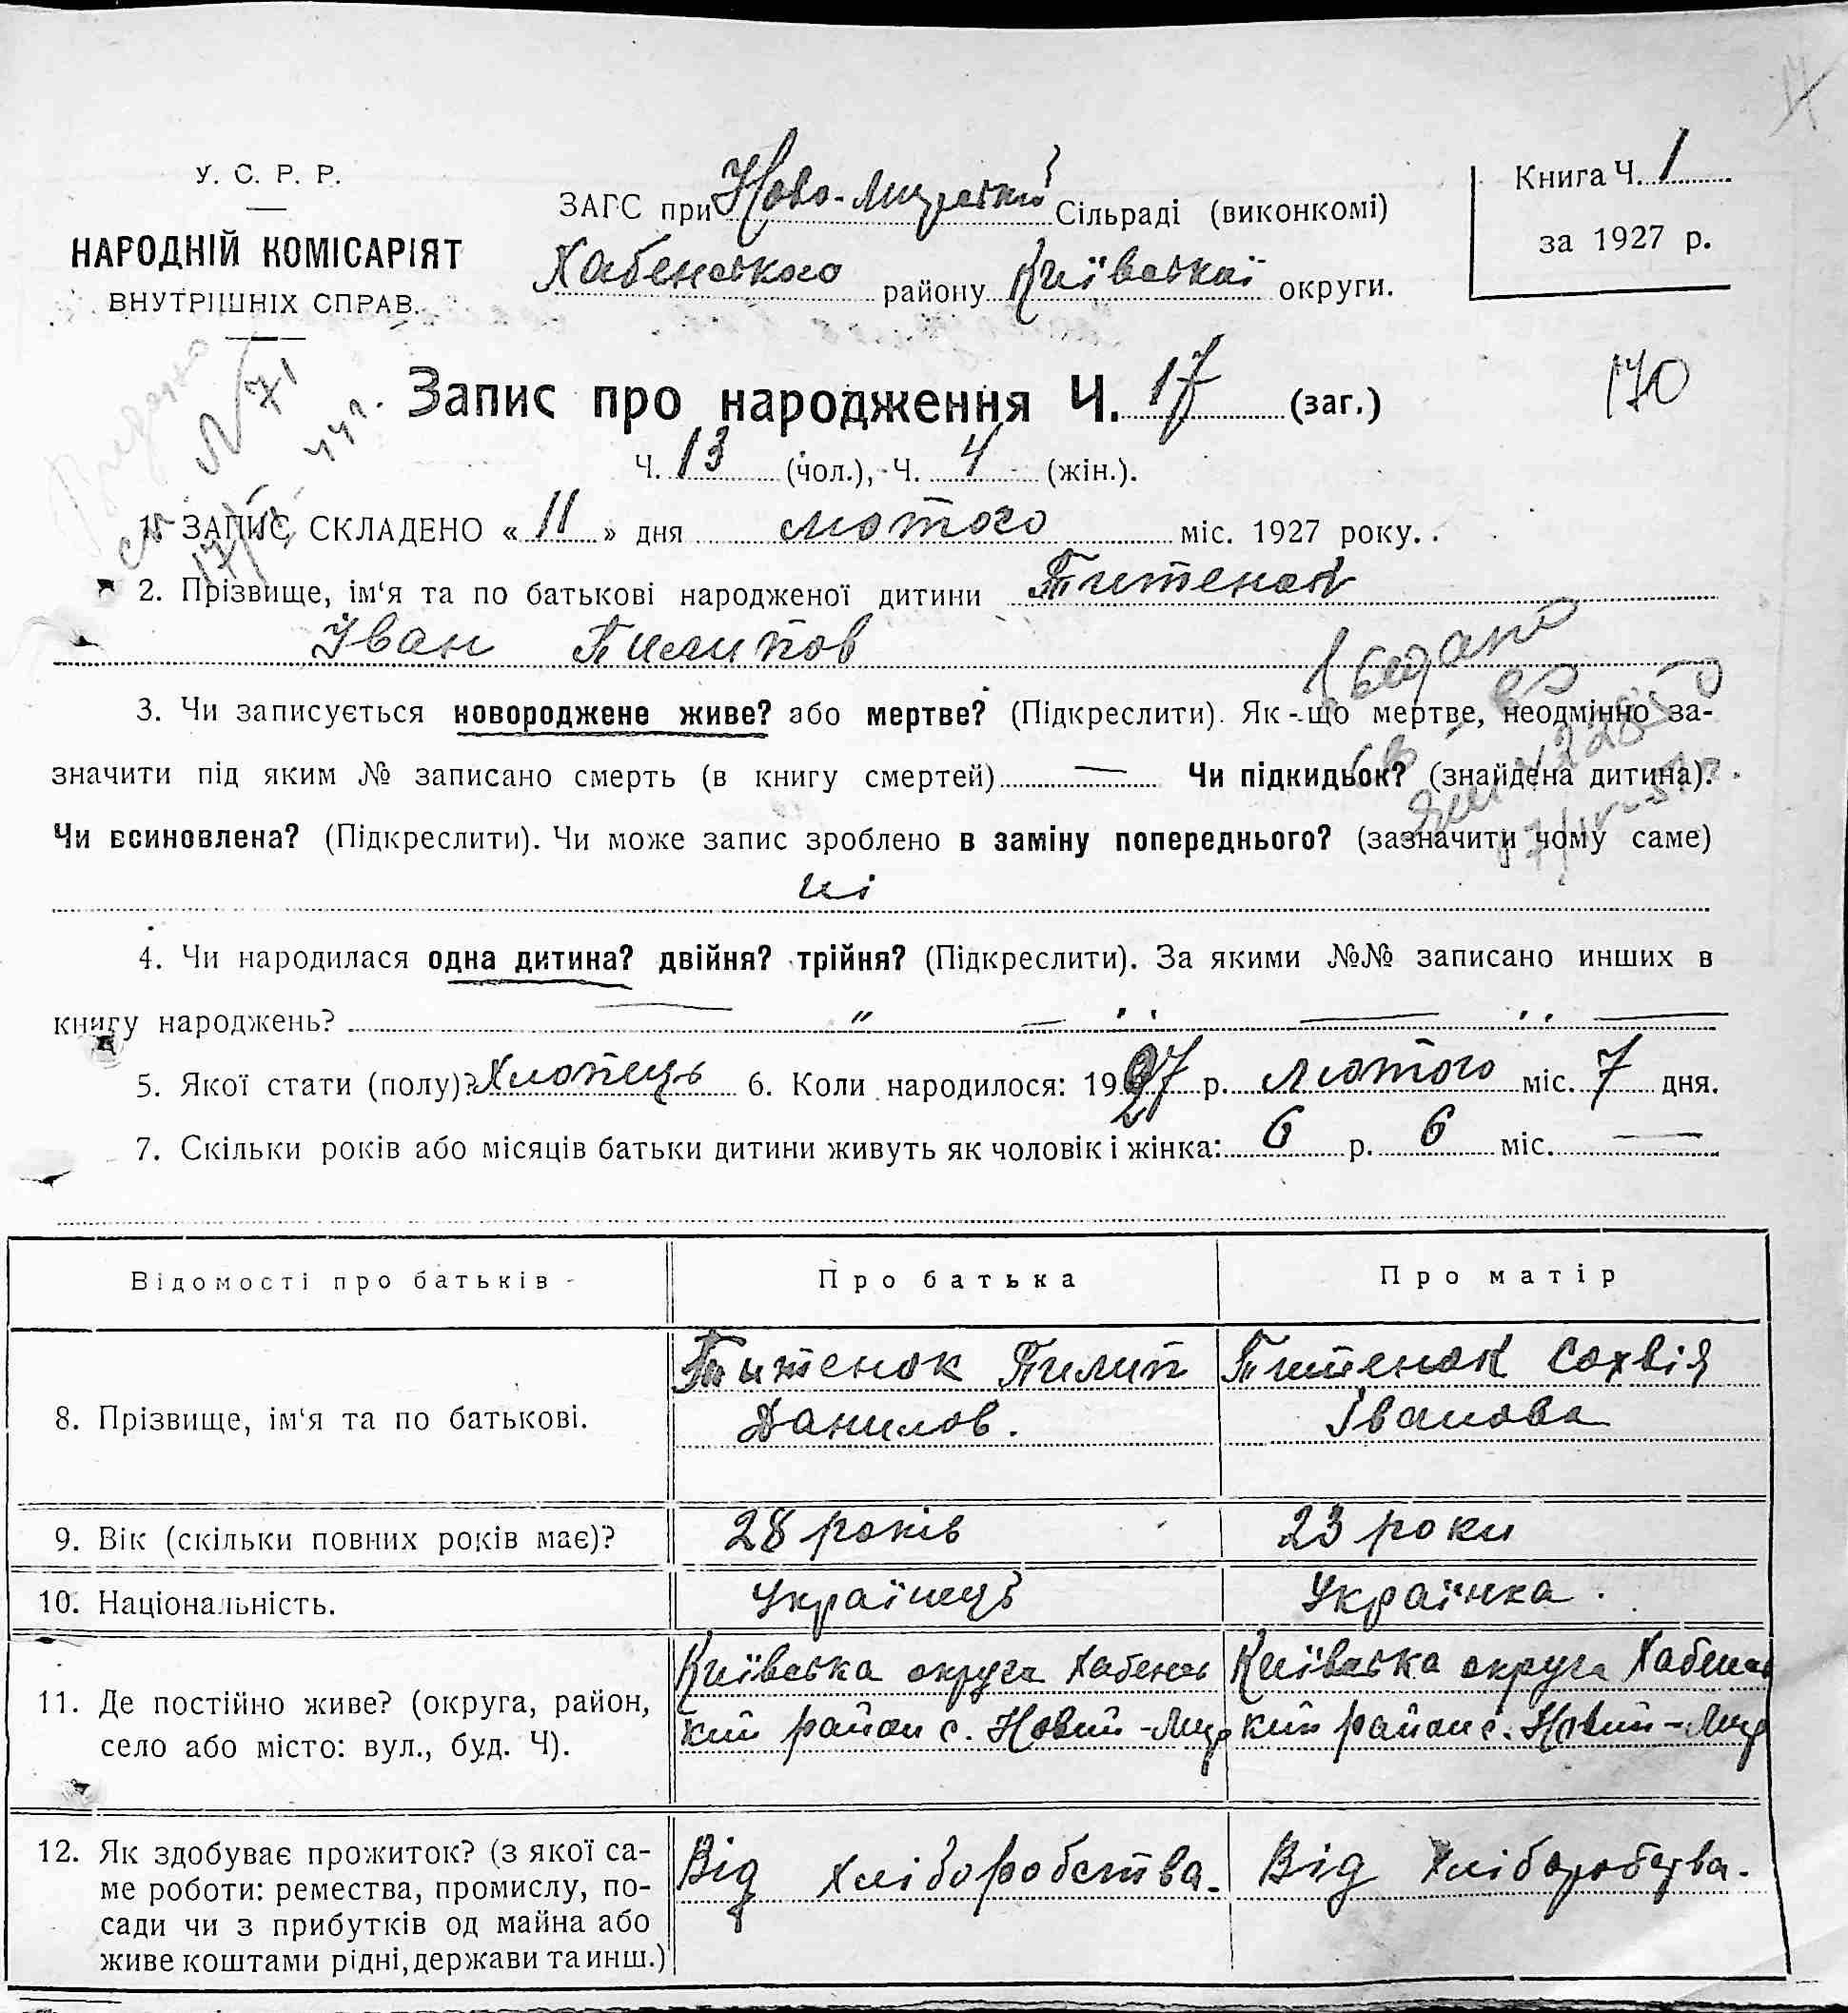 17
У. С. Р. Р.
НАРОДНІЙ КОМІСАРІЯТ
ВНУТРІШНІХ СПРАВ.
ЗАГС при Ново-Мирський Сільраді (виконкомі)
Хабенського району Київської округи.
Книга Ч. 1
за 1927 р.
№ 71
44 г.
Запис про народження Ч. 17 (заг.)
170
Ч. 13 (чол.), Ч. 4 (жін.).
1. ЗАПИС СКЛАДЕНО « 11 » дня лютого міс. 1927 року.
2. Прізвище, ім'я та по батькові народженої дитини Питенок
Іван Пилипов
Выдано
3. Чи записується новороджене живе? або мертве? (Підкреслити). Як-що мертве, неодмінно за-
значити під яким № записано смерть (в книгу смертей) — Чи підкидьок? (знайдена дитина).
Чи всиновлена? (Підкреслити). Чи може запис зроблено в заміну попереднього? (зазначити чому саме)
ні
4. Чи народилася одна дитина? двійня? трійня? (Підкреслити). За якими №№ записано инших в
книгу народжень? — " — " — " —
5. Якої стати (полу)? Хлопець 6. Коли народилося: 1927 р. лютого міс. 7 дня.
7. Скільки років або місяців батьки дитини живуть як чоловік і жінка: 6 р. 6 міс. —
Відомості про батьків
Про батька
Про матір
8. Прізвище, ім'я та по батькові.
Питенок Пилип
Данилов.
Питенок Сохвія
Іванова
9. Вік (скільки повних років має)?
28 років
23 роки
10. Національність.
Українець
Українка.
11. Де постійно живе? (округа, район,
село або місто: вул., буд. Ч).
Київська округа Хабенсь
кий район с. Новий-Мир
Київська округа Хабенсь
кий район с. Новий-Мир
12. Як здобуває прожиток? (з якої са-
ме роботи: ремества, промислу, по-
сади чи з прибутків од майна або
живе коштами рідні, держави та инш.)
Від хліборобства.
Від хліборобства.